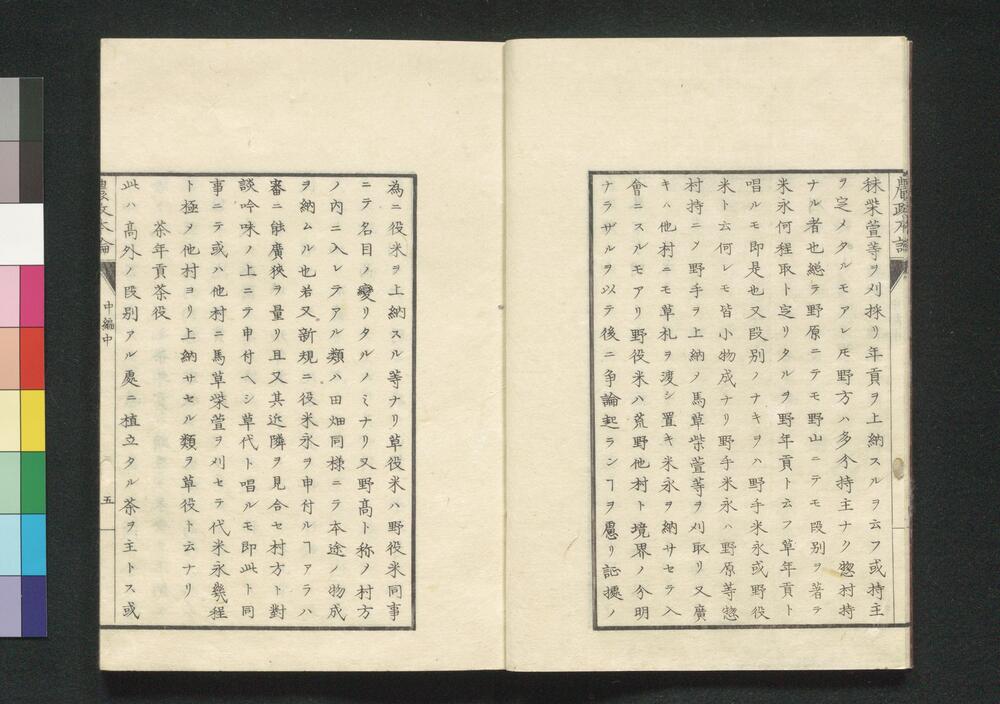 農政本論
秣柴萱等ヲ刈採リ年貢ヲ上納スルヲ云フ或持主
ヲ定メタルモアレ𪜈野方ハ多分持主ナク惣村持
ナル者也総テ野原ニテモ野山ニテモ段別ヲ著テ
米永何程取ト定リタルヲ野年貢ト云フ草年貢ト
唱ルモ即是也又段別ノナキヲハ野手米永或野役
米ト云何レモ皆小物成ナリ野手米永ハ野原等惣
村持ニシテ野手ヲ上納ノ馬草柴萱等ヲ刈取リ又廣
キハ他村ニモ草札ヲ渡シ置キ米永ヲ納サセテ入
會ニスルモアリ野役米ハ荒野他村ト境界ノ分明
ナラザルヲ以テ後ニ争論起ランヿヲ慮リ証據ノ
為ニ役米ヲ上納スル等ナリ草役米ハ野役米同事
ニテ名目ノ變リタルノミナリ又野高ト称ノ村方
ノ内ニ入レテアル類ハ田畑同様ニテ本途ノ物成
ヲ納ムル也若又新規ニ役米永ヲ申付ルヿアラハ
審ニ能廣狹ヲ量リ且又其近隣ヲ見合セ村方ト對
談吟味ノ上ニテ申付ヘシ草代ト唱ルモ即此ト同
事ニテ或ハ他村ニ馬草柴萱ヲ刈セテ代米永幾程
ト極メ他村ヨリ上納サセル類ヲ草役ト云ナリ
茶年貢茶役
此ハ高外ノ段別アル處ニ植立タル茶ヲ主トス或
農政本論
中編中
五